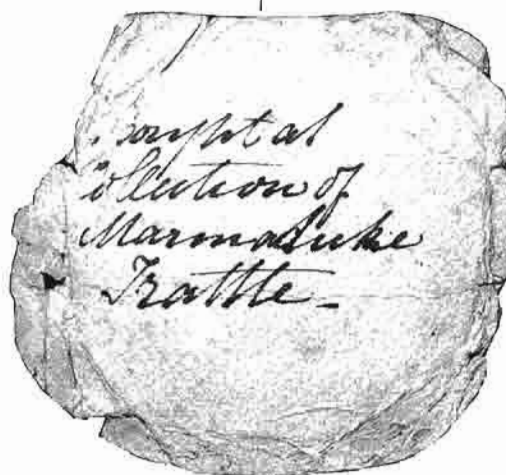 Bought at
Collection of
Marmaduke
Trattle_